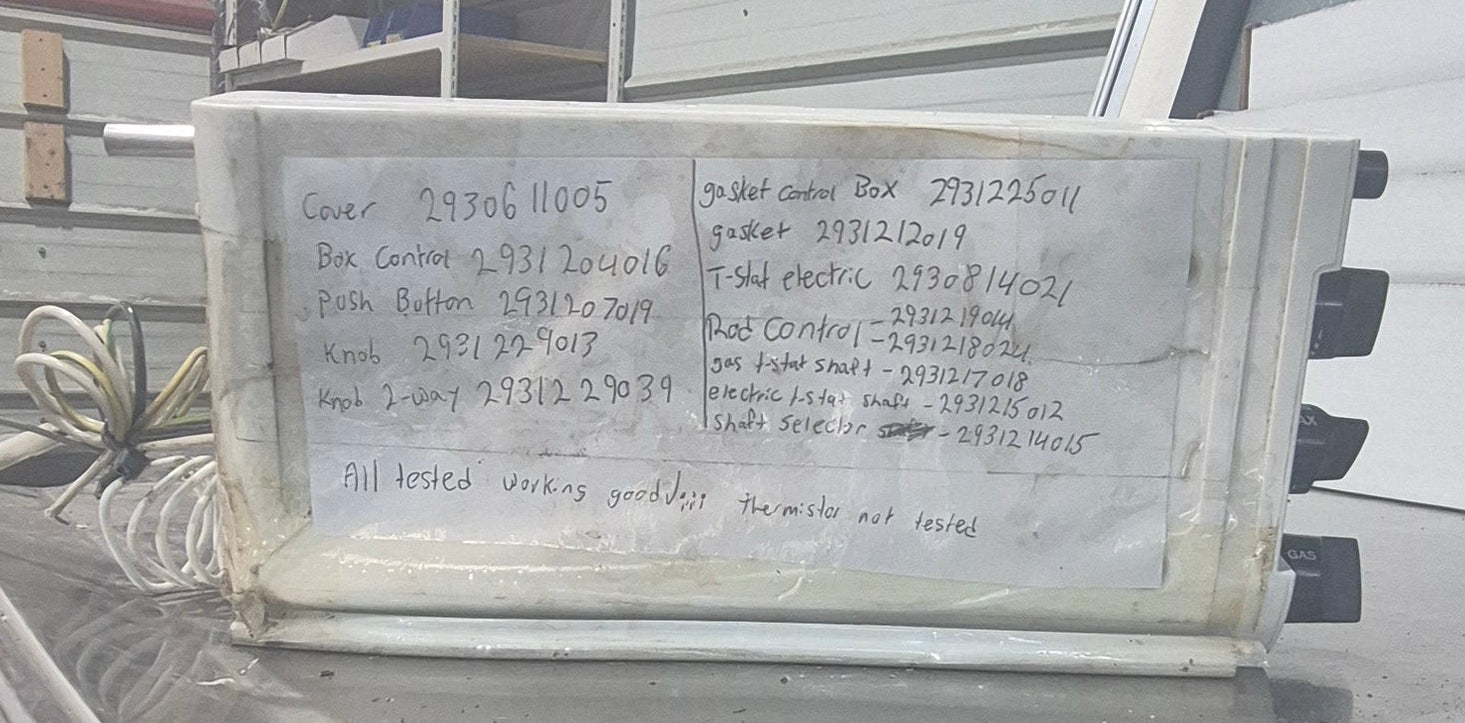 Cover 2930611005
Box Control 2931204016
Push Button 2931207019
Knob 2931229013
Knob 2-way 2931229039
gasket control Box 2931225011
gasket 2931212019
T-stat electric 2930814021
Rod Control - 2931219014
- 2931218024
gas t-stat shaft - 2931217018
electric t-stat shaft - 2931215012
shaft selector - 2931214015
All tested working good thermistor not tested
GAS